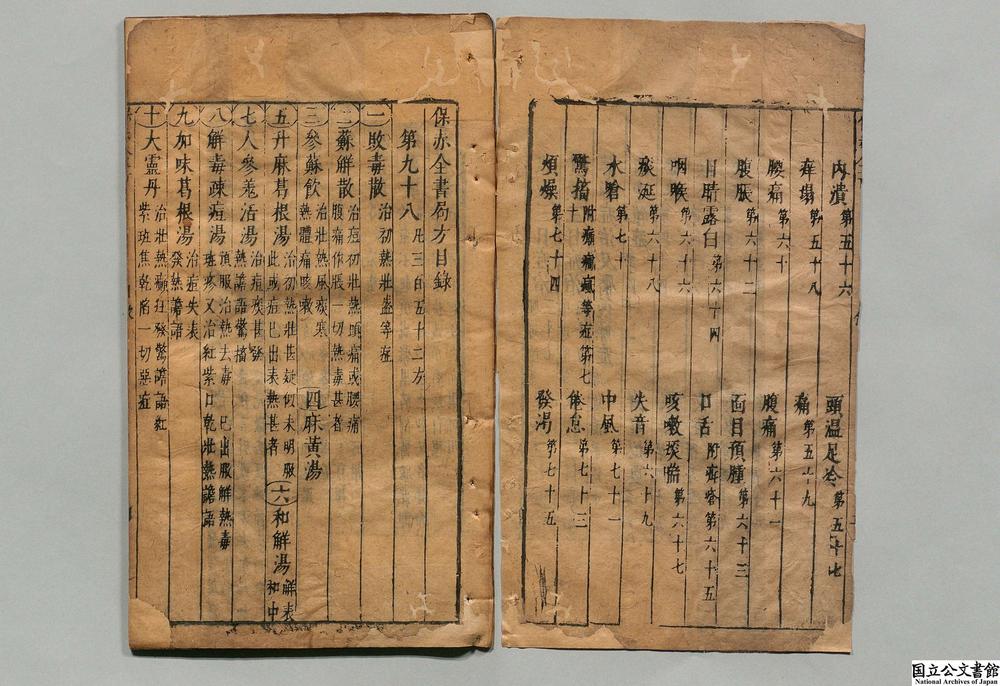 內潰第五十六
頭温足冷第五十七
癢塌第五十八
痛第五十九
腰痛第六十
腹痛第六十一
腹脹第六十二
面目預腫第六十三
目睛露白第六十四
口舌附齊容第六十五
咽喉第六十六
咳嗽痰喘第六十七
痰涎第六十八
失音第六十九
水嗆第七十
中風第七十一
驚搐附癲癇等症第七十二
倦怠第七十三
煩燥第七十四
發渴第七十五
保赤全書局方目錄
第九十八凡三百五十二方
一敗毒散治初熱壯盛等症
二蘇解散治痘初壯熱頭痛或腰痛腹痛作脹一切熱毒甚者
三參蘇飲治壯熱風痰寒熱體痛咳嗽
四麻黃湯
五升麻葛根湯治初熱壯甚疑似未明服此或痘已出表熱甚者
六和解湯解表和中
七人參羗活湯治痘痰甚發熱譫語驚搐
八解毒疎痘湯預服治熱去毒已出服解熱毒班疹又治紅紫口乾壯熱譫語
九加味葛根湯治痘失表發熱譫語
十大靈丹治壯熱癲狂發驚譫語紅紫班焦乾陷一切惡症
国立公文書館
National Archives of Japan